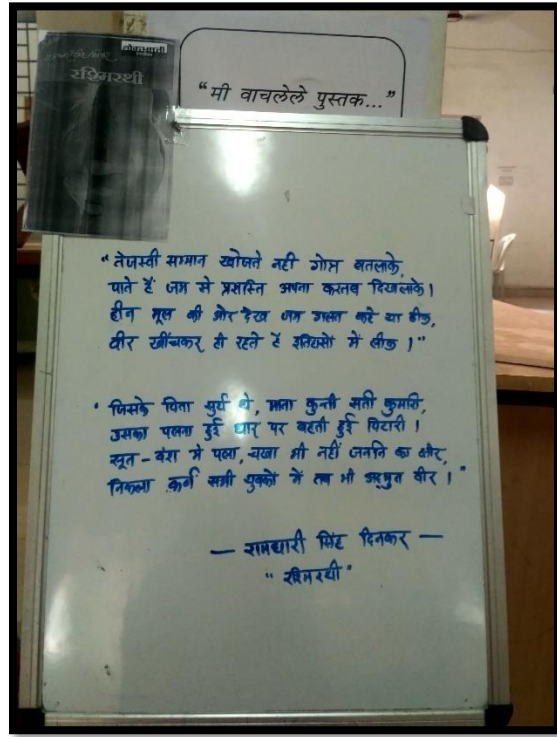 लोकभारती
रश्मिरथी
“मी वाचलेले पुस्तक...”
“तेजस्वी सम्मान खोजते नही गोत्र बतलाके,
पाते हैं जग से प्रशस्ति अपना करतब दिखलाके।
हीन मूल की ओर देख जग गलत कहे या ठीक,
वीर खींचकर ही रहते हैं इतिहासों में लीक।”
“जिसके पिता सूर्य थे, माता कुन्ती सती कुमारी,
उसका पलना हुई धार पर बहती हुई पिटारी।
सूत-वंश मे पला, चखा भी नहीं जननि का क्षीर,
निकला कर्ण सभी युवकों में तब भी अद्भुत वीर।”
— रामधारी सिंह दिनकर —
“रश्मिरथी”